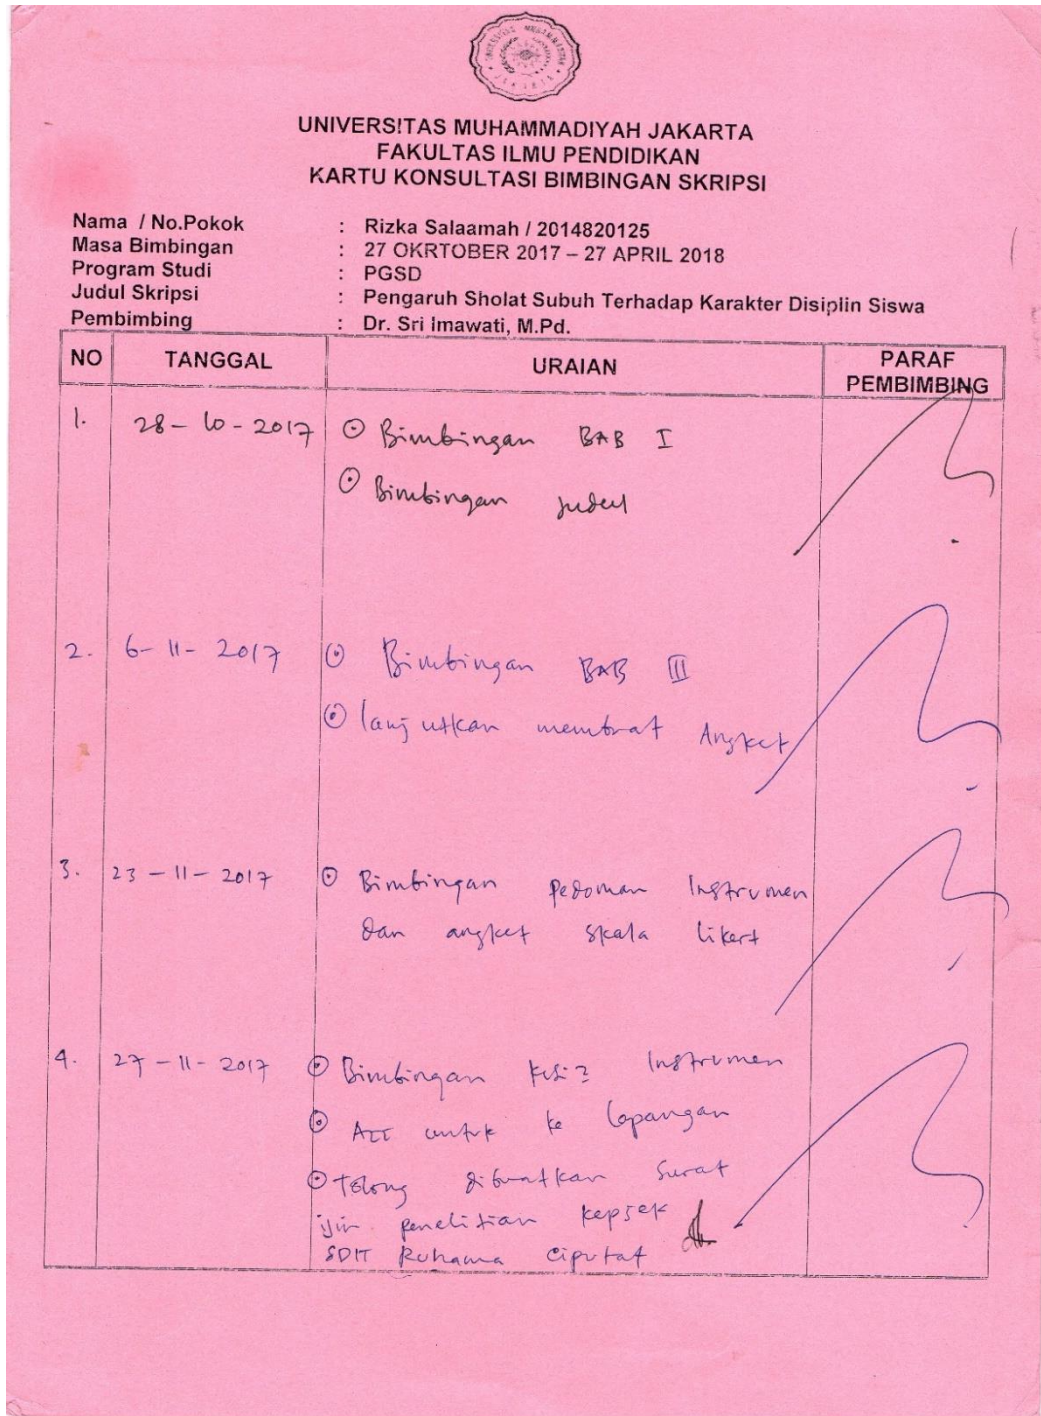 UNIVERSITAS MUHAMMADIYAH JAKARTA
UNIVERSITAS MUHAMMADIYAH JAKARTA
FAKULTAS ILMU PENDIDIKAN
KARTU KONSULTASI BIMBINGAN SKRIPSI
Nama / No.Pokok : Rizka Salaamah / 2014820125
Masa Bimbingan : 27 OKRTOBER 2017 – 27 APRIL 2018
Program Studi : PGSD
Judul Skripsi : Pengaruh Sholat Subuh Terhadap Karakter Disiplin Siswa
Pembimbing : Dr. Sri Imawati, M.Pd.
NO TANGGAL URAIAN PARAF
PEMBIMBING
1. 28-10-2017 Bimbingan BAB I
Bimbingan judul
2. 6-11-2017 Bimbingan BAB III
lanjutkan membuat Angket
3. 23-11-2017 Bimbingan pedoman Instrumen
dan angket skala likert
4. 27-11-2017 Bimbingan kisi2 Instrumen
Acc untuk ke lapangan
Tolong dibuatkan surat
ijin penelitian kepsek
SDIT Ruhama Ciputat